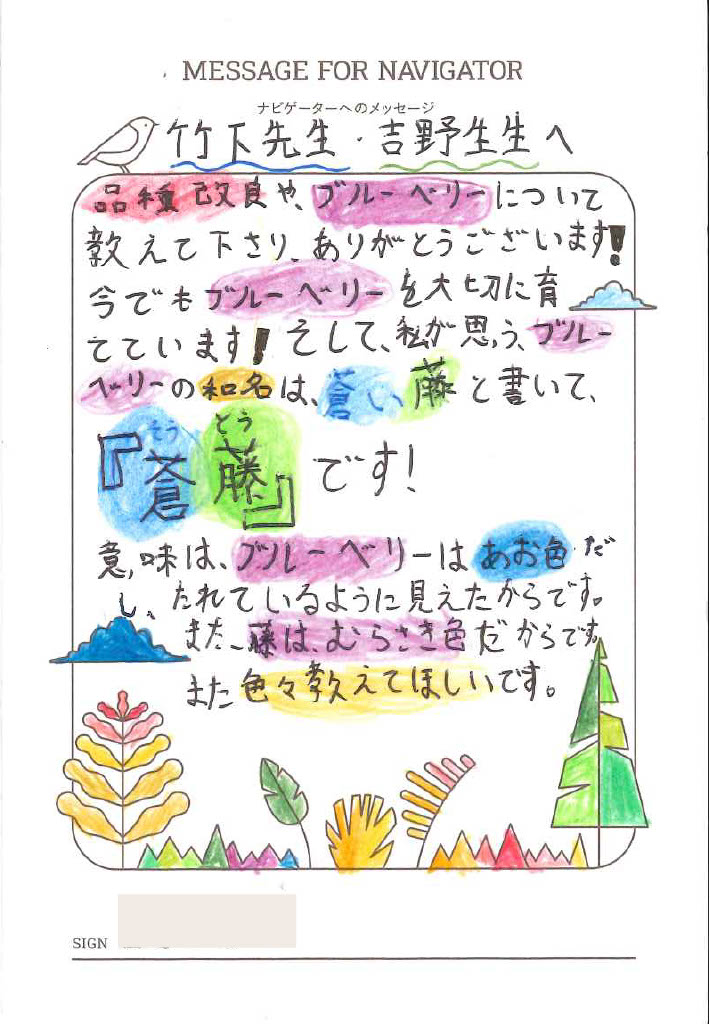 MESSAGE FOR NAVIGATOR
ナビゲーターへのメッセージ
竹下先生・吉野先生へ
品種改良や、ブルーベリーについて
教えて下さり、ありがとうございます!
今でもブルーベリーを大切に育
てています!そして、私が思う、ブルー
ベリーの和名は、蒼い藤と書いて、
そう とう
『蒼藤』です!
意味は、ブルーベリーはあお色だ
し、たれているように見えたからです。
また、藤は、むらさき色だからです。
また色々教えてほしいです。
SIGN